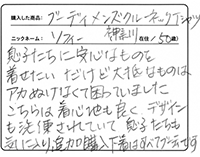 購入した商品: ブーディメンズクルーネックTシャツ
ニックネーム: ソフィー 神奈川 在住/50歳)
息子たちに安心なものを
着せたい だけど大抵なものは
アカぬけなくて困っていました
こちらは着心地も良く デザイン
も洗練されていて 息子たちも
気に入り追加購入 下着はすべてブーディです